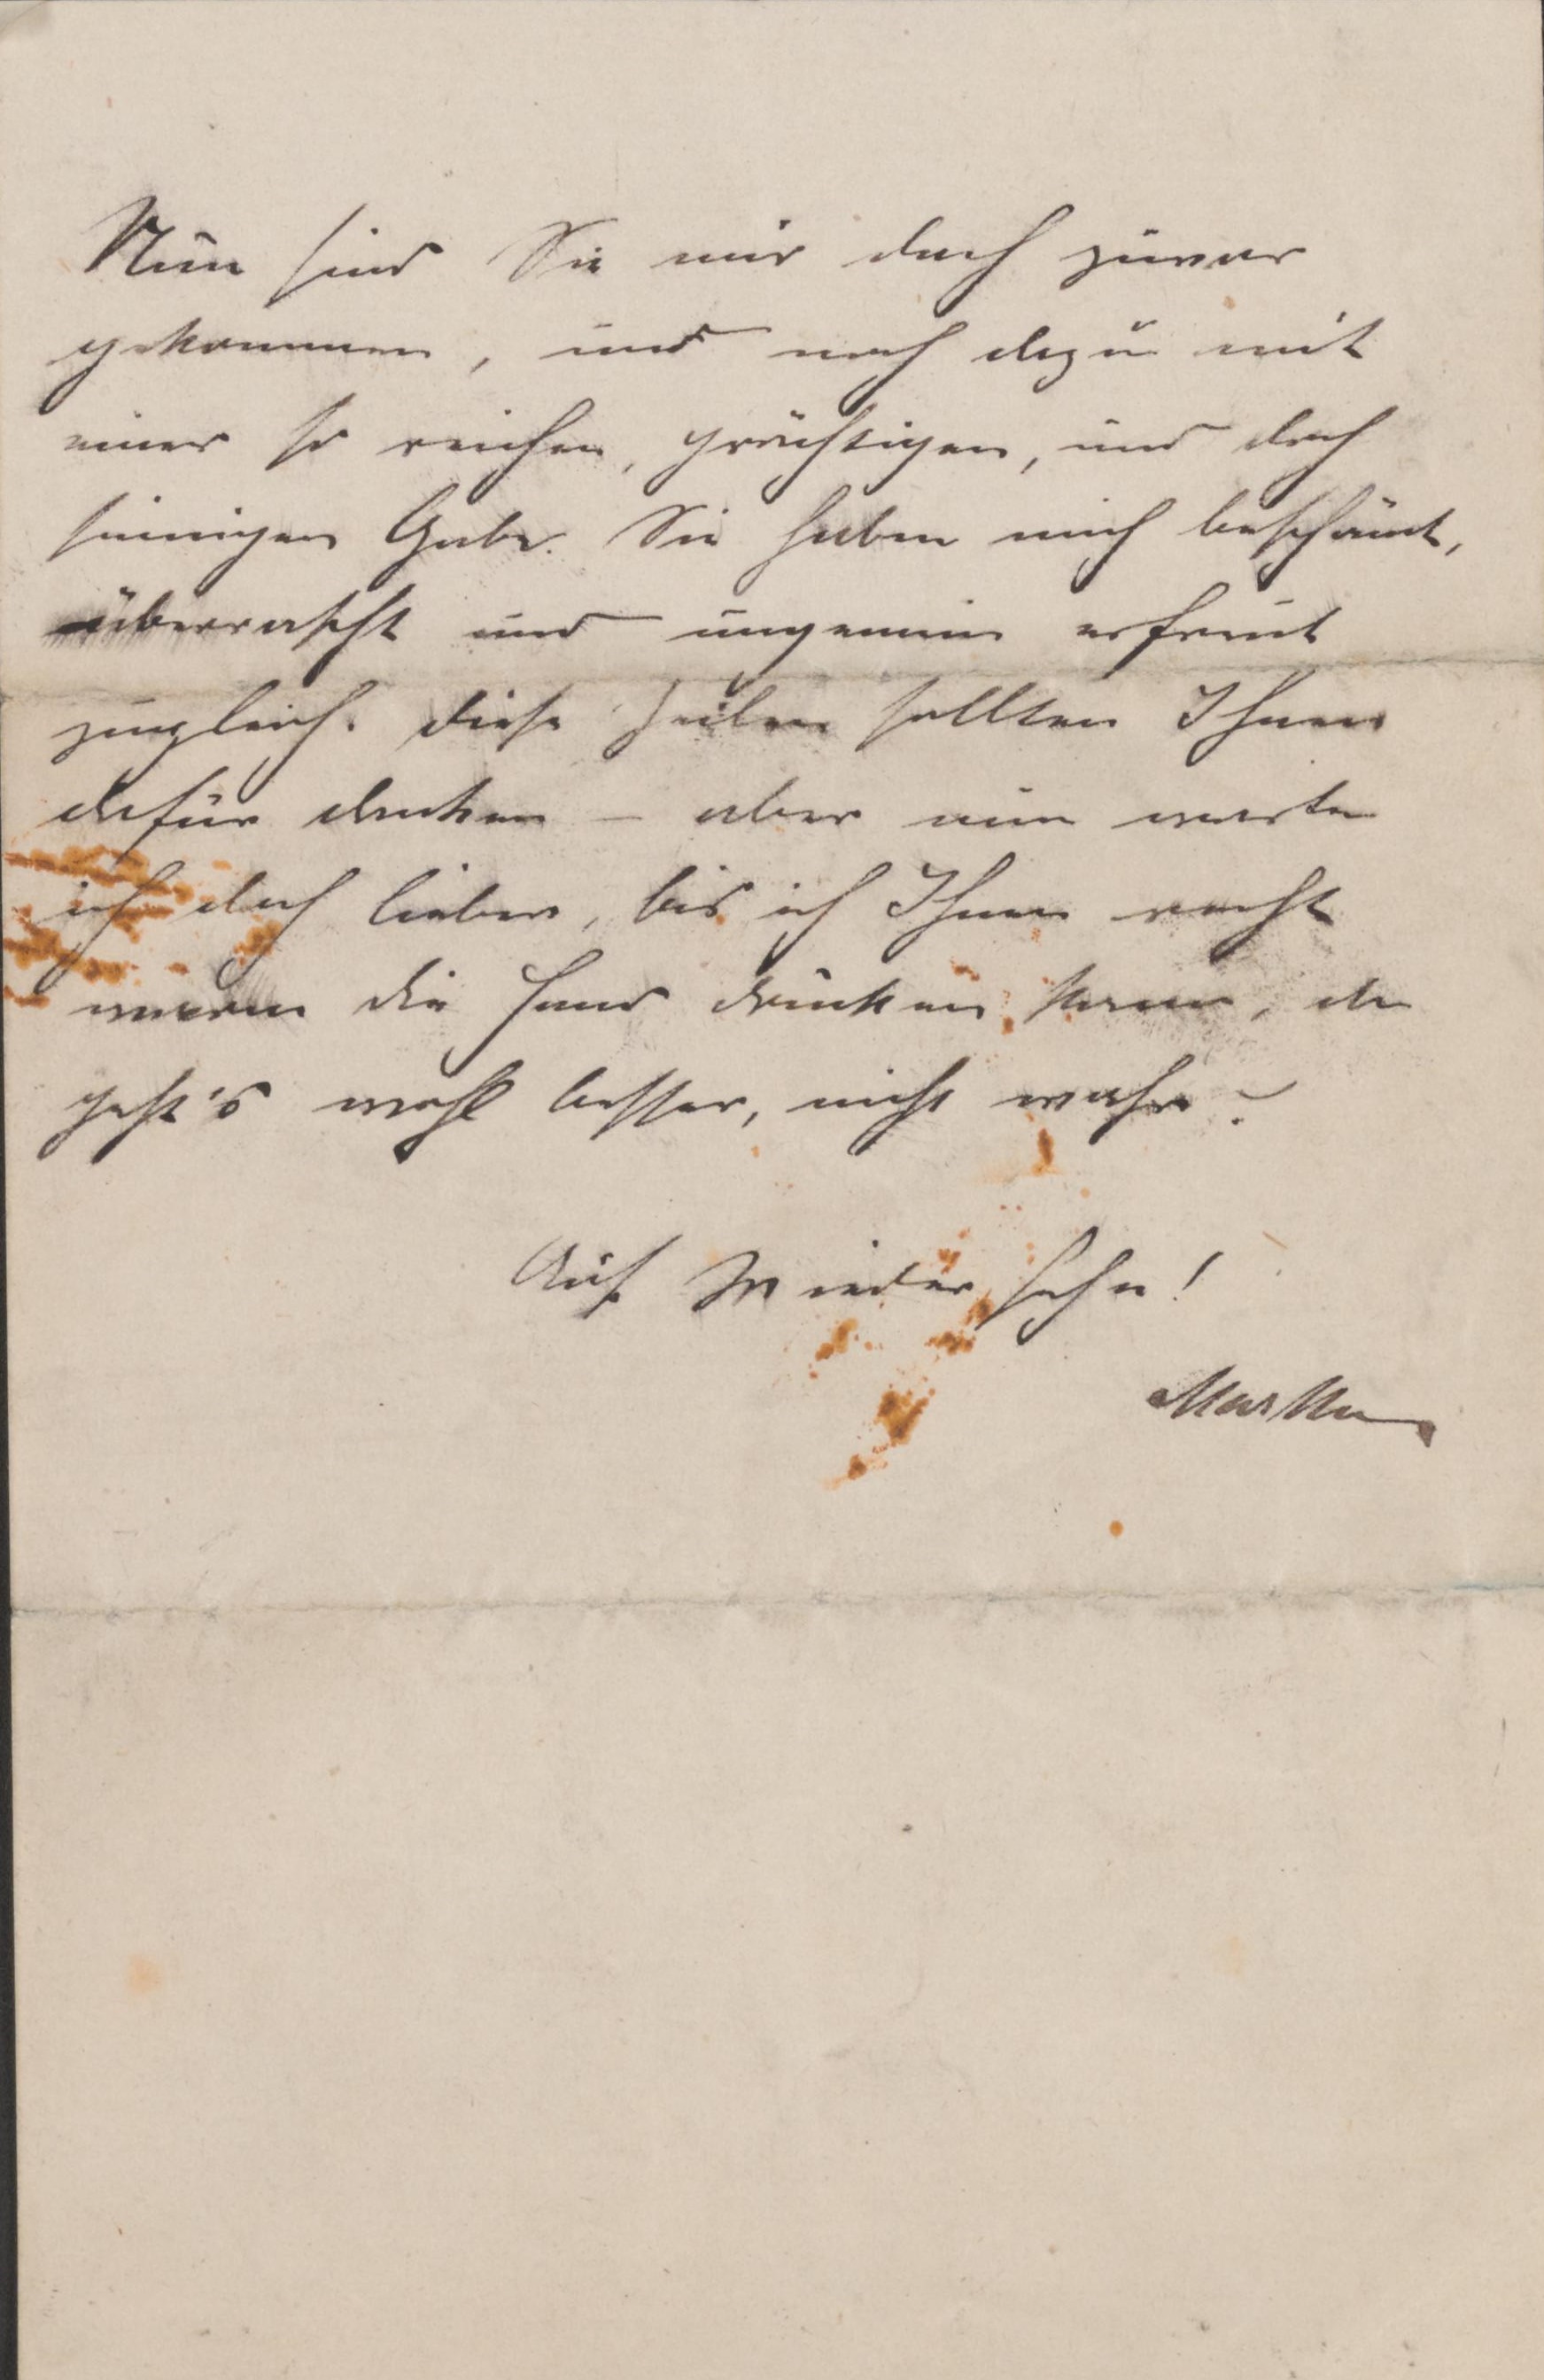 Nun sind Sie mir doch zuvor
gekommen, und noch dazu mit
einer so reichen, prächtigen, und doch
sinnigen Gabe. Sie haben mich beschämt,
überrascht und ungemein erfreut
zugleich. Diese Zeilen sollten Ihnen
dafür danken – aber nun warte
ich doch lieber, bis ich Ihnen recht
warm die Hand drücken kann, da
geht's wohl besser, nicht wahr?
Auf Wiedersehn!